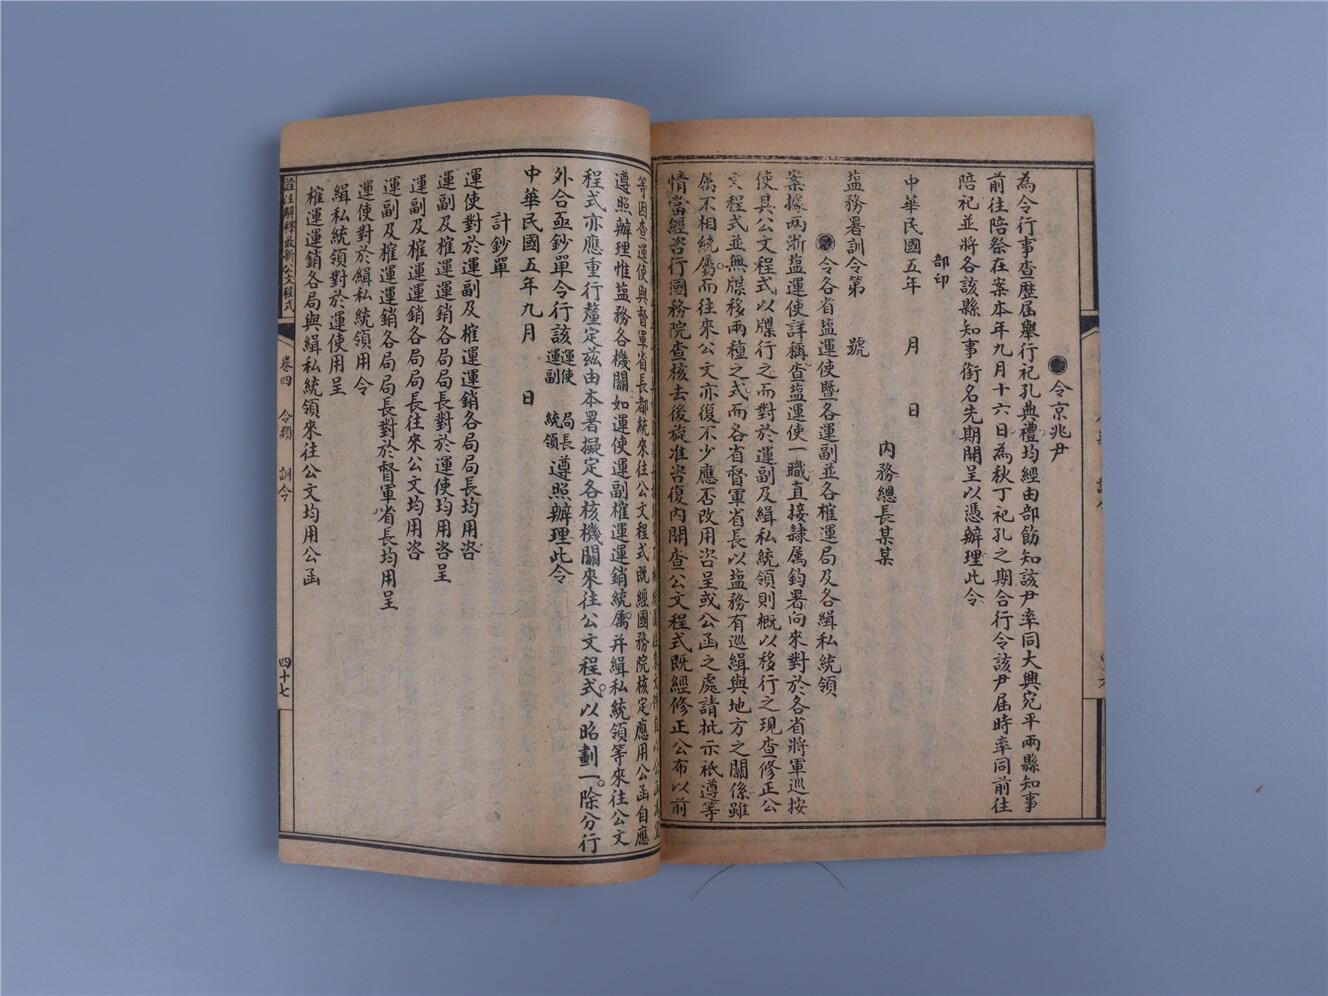 令京兆尹
為令行事查歷屆舉行祀孔典禮均經由部飭知該尹率同大興宛平兩縣知事
前往陪祭在案本年九月十六日為秋丁祀孔之期合行令該尹屆時率同前往
陪祀並將各該縣知事銜名先期開呈以憑辦理此令
部印
中華民國五年　月　日
內務總長某某
鹽務署訓令第　號
令各省鹽運使暨各運副並各榷運局及各緝私統領
案據兩浙鹽運使詳稱查鹽運使一職直接隸属鈞署向來對於各省將軍巡按
使具公文程式以牒行之而對於運副及緝私統領則概以移行之現查修正公
文程式並無牒移兩種之式而各省督軍省長以鹽務有巡緝與地方之關係雖
属不相統属。而往來公文亦復不少應否改用咨呈或公函之處請批示祇遵等
情當經咨行國務院查核去後旋准咨復內開查公文程式既經修正公布以前
等因查運使與督軍省長都統來往公文程式既經國務院核定應用公函自應
遵照辦理惟鹽務各機關如運使運副榷運運銷統属并緝私統領等來往公文
程式亦應重行釐定茲由本署擬定各核機關來往公文程式。以昭劃一。除分行
外合亟鈔單令行該運使運副　局長統領遵照辦理此令
中華民國五年九月　日
計鈔單
運使對於運副及榷運運銷各局局長均用咨
運副及榷運運銷各局局長對於運使均用咨呈
運副及榷運運銷各局局長往來公文均用咨
運副及榷運運銷各局局長對於督軍省長均用呈
運使對於緝私統領用令
緝私統領對於運使用呈
榷運運銷各局與緝私統領來往公文均用公函
註解解釋最新公文程式
卷四　令類　訓令
四十七